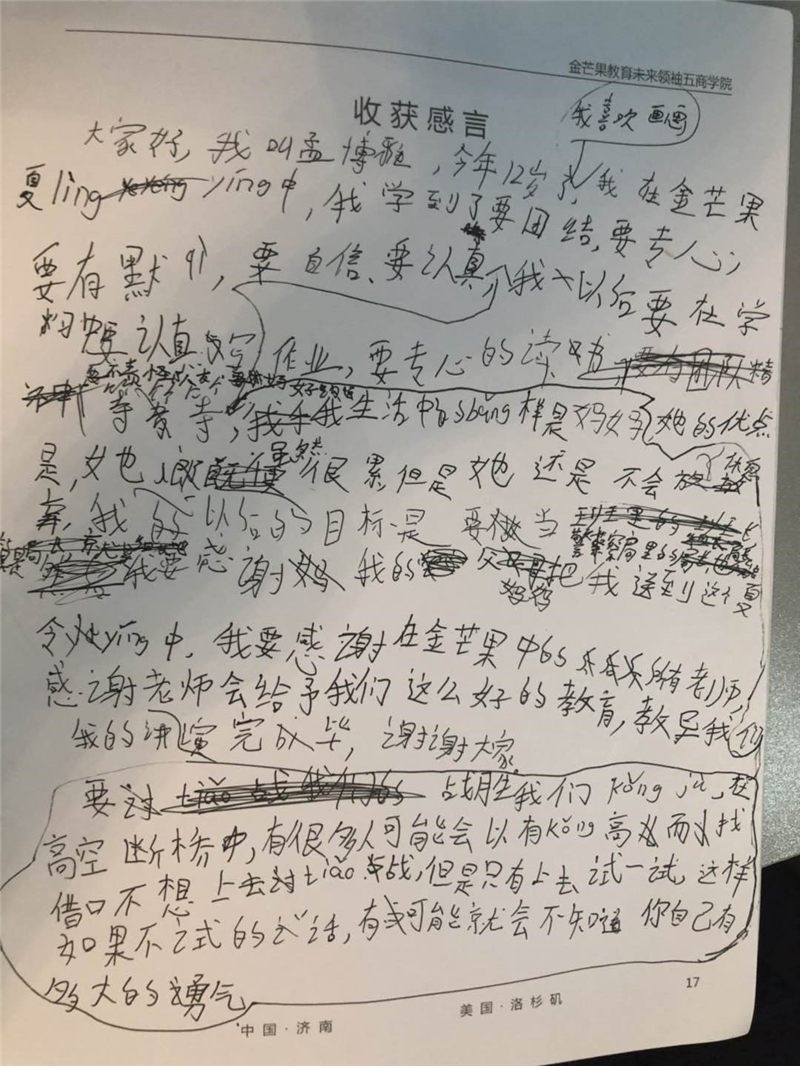 金芒果教育未来领袖五商学院
收获感言
我喜欢画画
大家好,我叫孟博雅,今年12岁了,我在金芒果
夏ling ying中,我学到了要团结,要专心,
要有默qi,要自信、要认真,我以后要在学
认真写作业,要专心的读书,
我生活中的bǎng样是妈妈,她的优点
是,她 虽然很累,但是她还是不会放
弃,我的以后的目标是 要做当
我要感谢 我的 父母把我送到这个夏
令ying中,我要感谢在金芒果中的所有老师,
感谢老师会给予我们这么好的教育,教导我们
我的讲演完成毕,谢谢大家
要对 战胜我们kǒng jù,在
高空断桥中,有很多人可能会以有kǒng高 而找
借口不想上去对tiǎo战,但是只有上去试一试,这样
如果不试的话,有可能就会不知道你自己有
多大的勇气
17
中国·济南
美国·洛杉矶